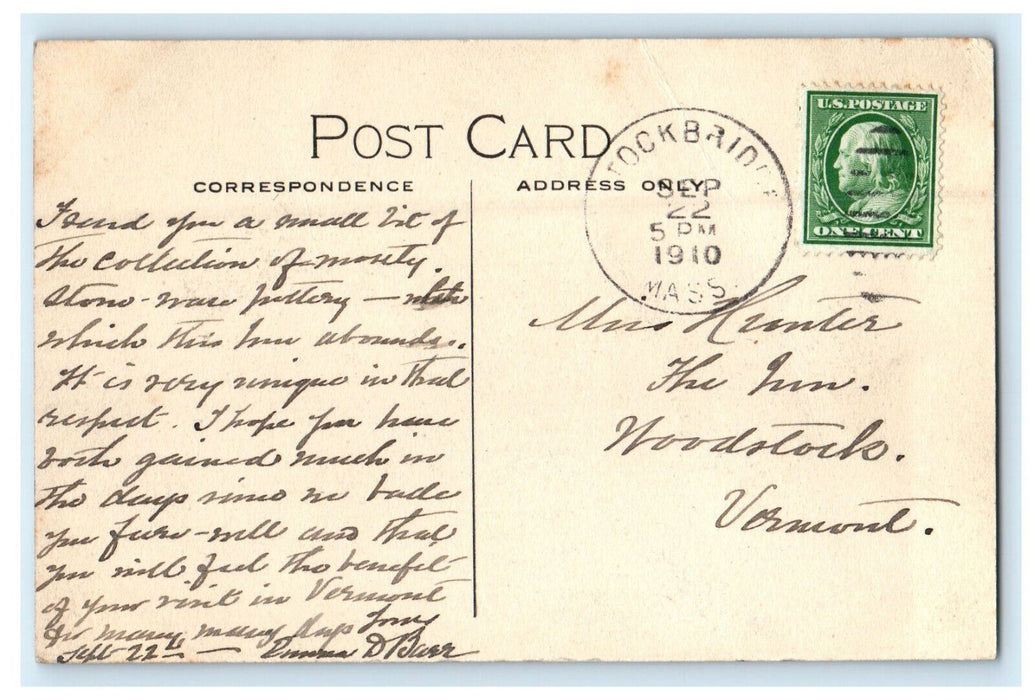 POST CARD
CORRESPONDENCE
ADDRESS ONLY
STOCKBRIDGE
SEP
22
5 PM
1910
MASS.
U.S. POSTAGE
ONE CENT
I send you a small bit of
the collection of mostly
stone-ware pottery — with
which this Inn abounds.
It is very unique in that
respect. I hope you have
both gained much in
the days since we bade
you fare-well and that
you will feel the benefit
of your visit in Vermont
for many, many days
Yours
Sept 22d — Emma D Barr
Mrs Hunter
The Inn.
Woodstock.
Vermont.